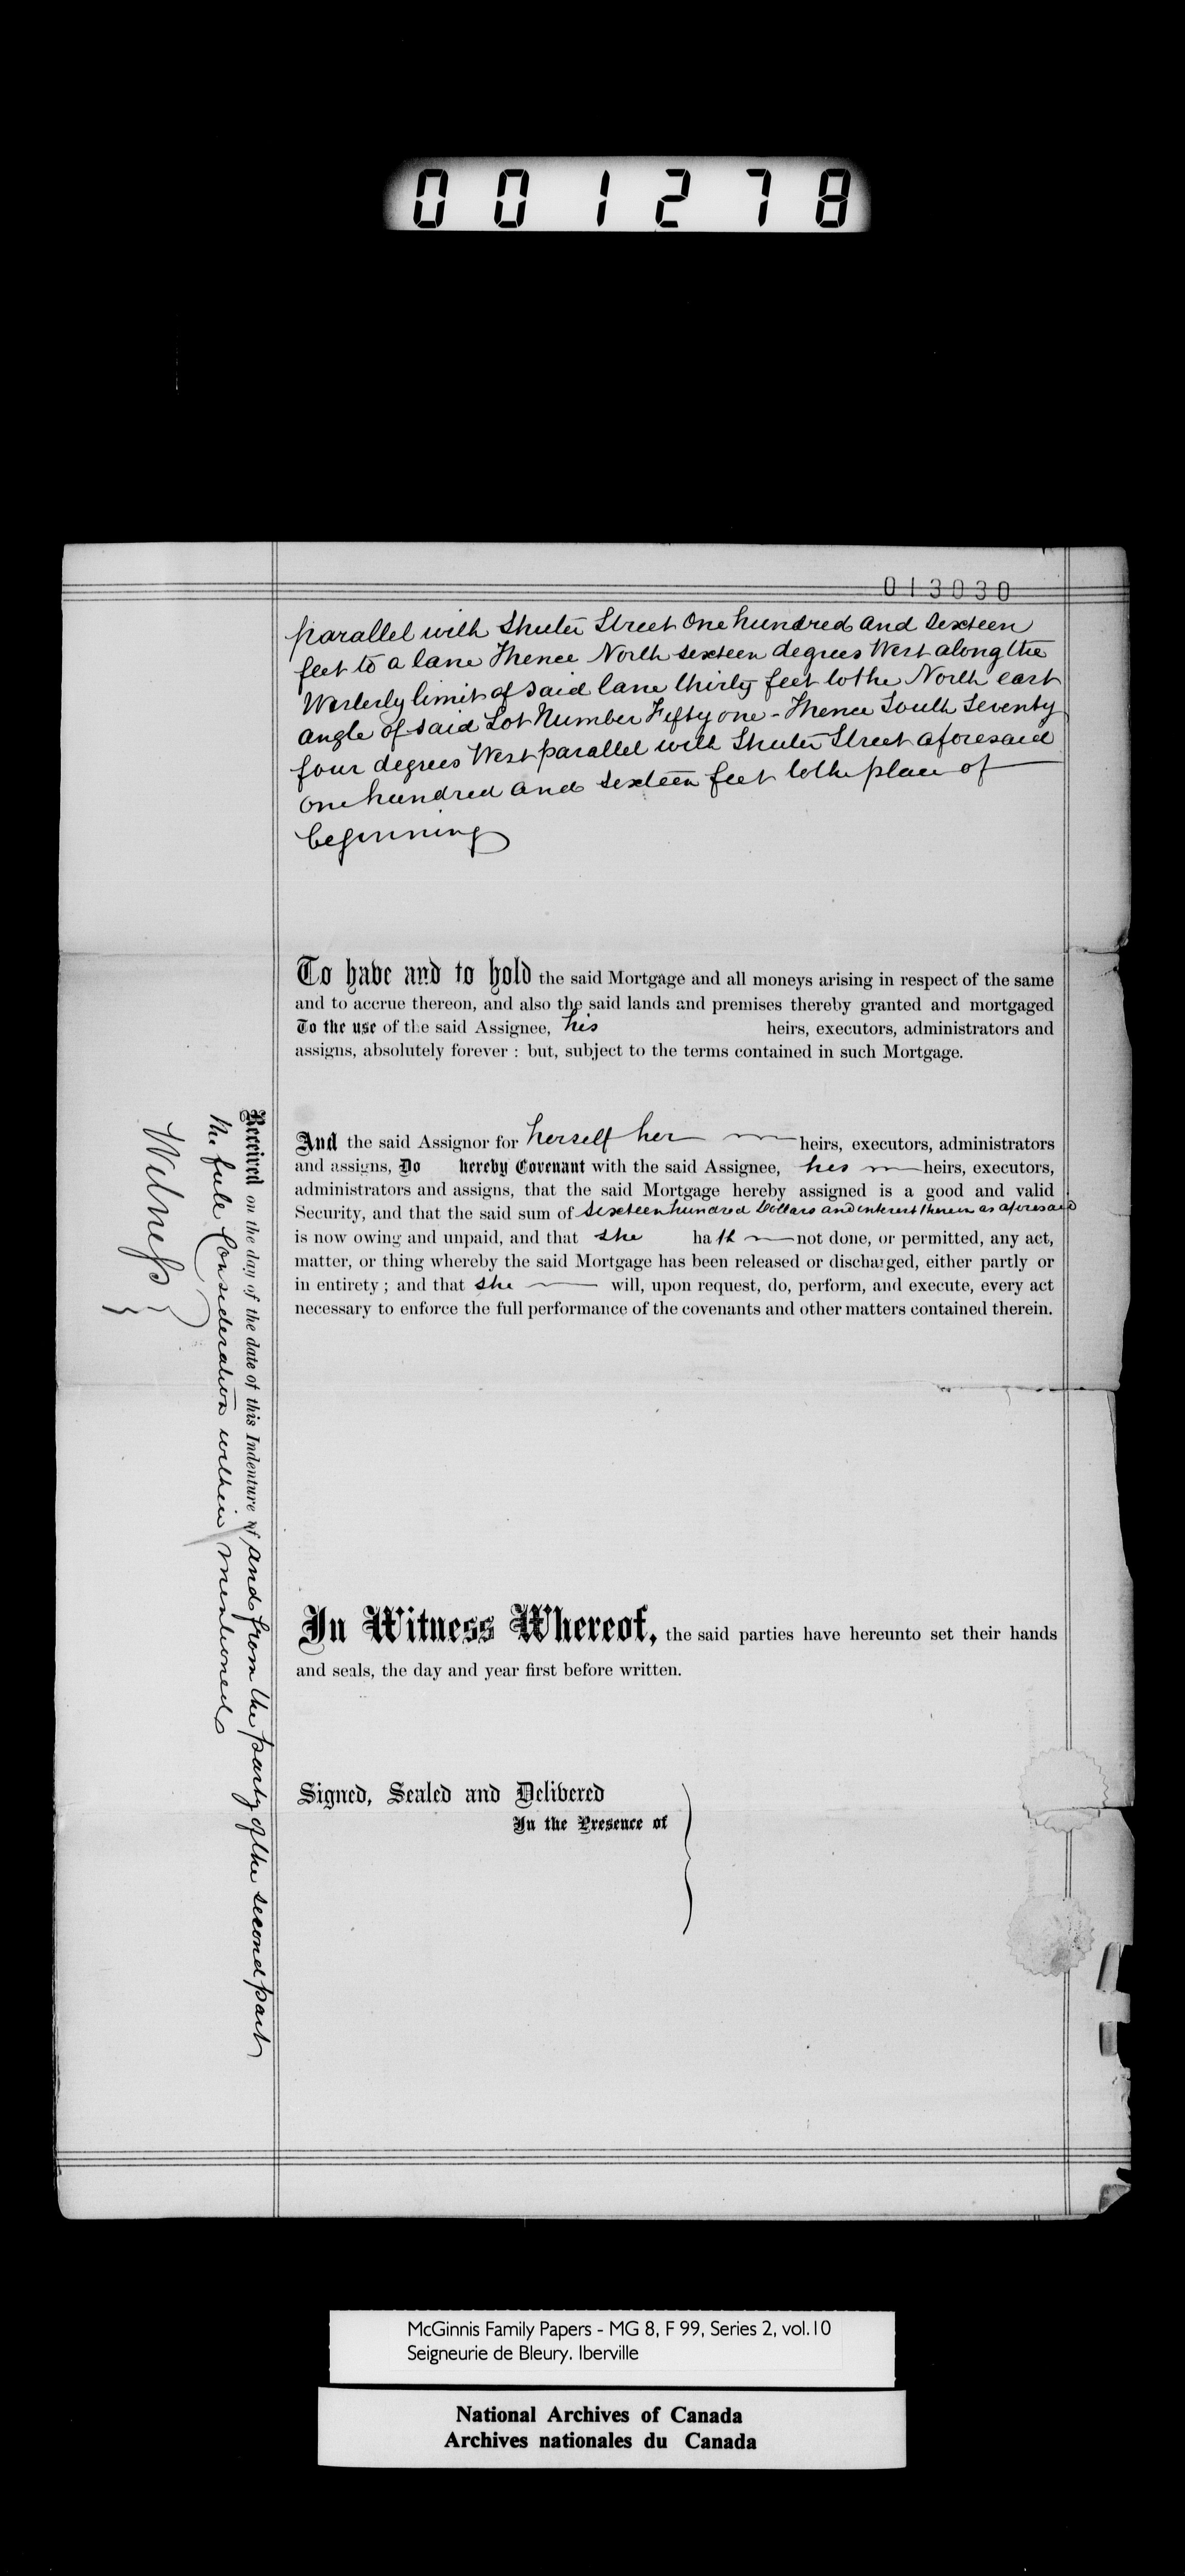 001278
013030
parallel with Shuter Street One hundred and sixteen
feet to a lane Thence North sixteen degrees West along the
Westerly limit of said lane thirty feet to the North east
angle of said Lot Number Fifty one - Thence South Seventy
four degrees West parallel with Shuter Street aforesaid
one hundred and sixteen feet to the place of
beginning
To have and to hold the said Mortgage and all moneys arising in respect of the same
and to accrue thereon, and also the said lands and premises thereby granted and mortgaged
To the use of the said Assignee, his heirs, executors, administrators and
assigns, absolutely forever : but, subject to the terms contained in such Mortgage.
And the said Assignor for herself her heirs, executors, administrators
and assigns, Do hereby Covenant with the said Assignee, his heirs, executors,
administrators and assigns, that the said Mortgage hereby assigned is a good and valid
Security, and that the said sum of sixteen hundred Dollars and interest therein as aforesaid
is now owing and unpaid, and that she hath not done, or permitted, any act,
matter, or thing whereby the said Mortgage has been released or discharged, either partly or
in entirety ; and that she will, upon request, do, perform, and execute, every act
necessary to enforce the full performance of the covenants and other matters contained therein.
In Witness Whereof, the said parties have hereunto set their hands
and seals, the day and year first before written.
Signed, Sealed and Delivered
In the Presence of
Received on the day of the date of this Indenture of and from the party of the second part
the full Consideration within mentioned
Witness
McGinnis Family Papers - MG 8, F 99, Series 2, vol.10
Seigneurie de Bleury. Iberville
National Archives of Canada
Archives nationales du Canada